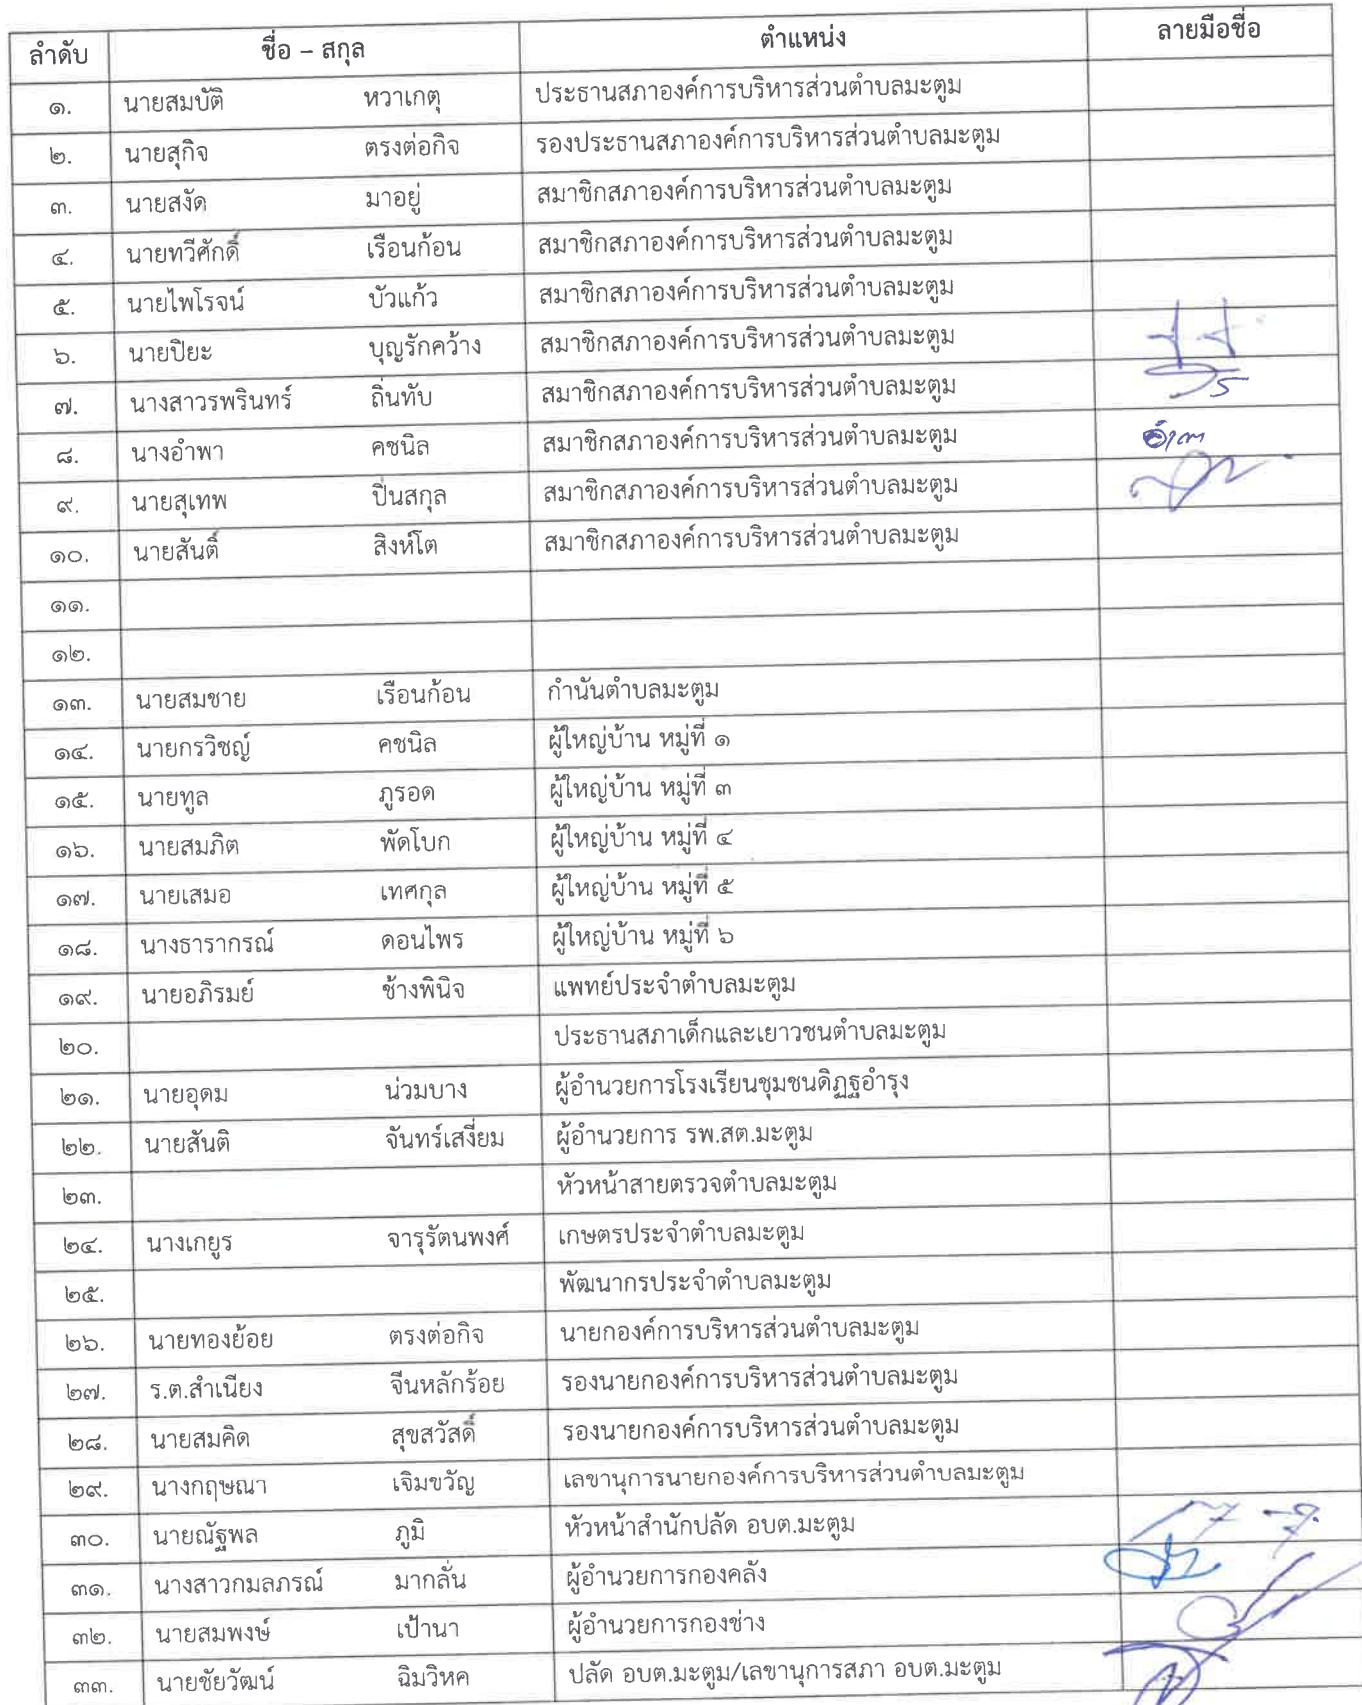 ลำดับ ชื่อ – สกุล ตำแหน่ง ลายมือชื่อ
๑. นายสมบัติ หวาเกตุ ประธานสภาองค์การบริหารส่วนตำบลมะตูม
๒. นายสุกิจ ตรงต่อกิจ รองประธานสภาองค์การบริหารส่วนตำบลมะตูม
๓. นายสงัด มาอยู่ สมาชิกสภาองค์การบริหารส่วนตำบลมะตูม
๔. นายทวีศักดิ์ เรือนก้อน สมาชิกสภาองค์การบริหารส่วนตำบลมะตูม
๕. นายไพโรจน์ บัวแก้ว สมาชิกสภาองค์การบริหารส่วนตำบลมะตูม
๖. นายปิยะ บุญรักคว้าง สมาชิกสภาองค์การบริหารส่วนตำบลมะตูม
๗. นางสาวรพรินทร์ ถิ่นทับ สมาชิกสภาองค์การบริหารส่วนตำบลมะตูม
๘. นางอำพา คชนิล สมาชิกสภาองค์การบริหารส่วนตำบลมะตูม
๙. นายสุเทพ ปิ่นสกุล สมาชิกสภาองค์การบริหารส่วนตำบลมะตูม
๑๐. นายสันติ์ สิงห์โต สมาชิกสภาองค์การบริหารส่วนตำบลมะตูม
๑๑.
๑๒.
๑๓. นายสมชาย เรือนก้อน กำนันตำบลมะตูม
๑๔. นายกรวิชญ์ คชนิล ผู้ใหญ่บ้าน หมู่ที่ ๑
๑๕. นายทูล ภูรอด ผู้ใหญ่บ้าน หมู่ที่ ๓
๑๖. นายสมภิต พัดโบก ผู้ใหญ่บ้าน หมู่ที่ ๔
๑๗. นายเสมอ เทศกุล ผู้ใหญ่บ้าน หมู่ที่ ๕
๑๘. นางธารากรณ์ ดอนไพร ผู้ใหญ่บ้าน หมู่ที่ ๖
๑๙. นายอภิรมย์ ช้างพินิจ แพทย์ประจำตำบลมะตูม
๒๐. ประธานสภาเด็กและเยาวชนตำบลมะตูม
๒๑. นายอุดม น่วมบาง ผู้อำนวยการโรงเรียนชุมชนดิฏฐอำรุง
๒๒. นายสันติ จันทร์เสงี่ยม ผู้อำนวยการ รพ.สต.มะตูม
๒๓. หัวหน้าสายตรวจตำบลมะตูม
๒๔. นางเกยูร จารุรัตนพงศ์ เกษตรประจำตำบลมะตูม
๒๕. พัฒนากรประจำตำบลมะตูม
๒๖. นายทองย้อย ตรงต่อกิจ นายกองค์การบริหารส่วนตำบลมะตูม
๒๗. ร.ต.สำเนียง จีนหลักร้อย รองนายกองค์การบริหารส่วนตำบลมะตูม
๒๘. นายสมคิด สุขสวัสดิ์ รองนายกองค์การบริหารส่วนตำบลมะตูม
๒๙. นางกฤษณา เจิมขวัญ เลขานุการนายกองค์การบริหารส่วนตำบลมะตูม
๓๐. นายณัฐพล ภูมิ หัวหน้าสำนักปลัด อบต.มะตูม
๓๑. นางสาวกมลภรณ์ มากลั่น ผู้อำนวยการกองคลัง
๓๒. นายสมพงษ์ เป้านา ผู้อำนวยการกองช่าง
๓๓. นายชัยวัฒน์ ฉิมวิหค ปลัด อบต.มะตูม/เลขานุการสภา อบต.มะตูม